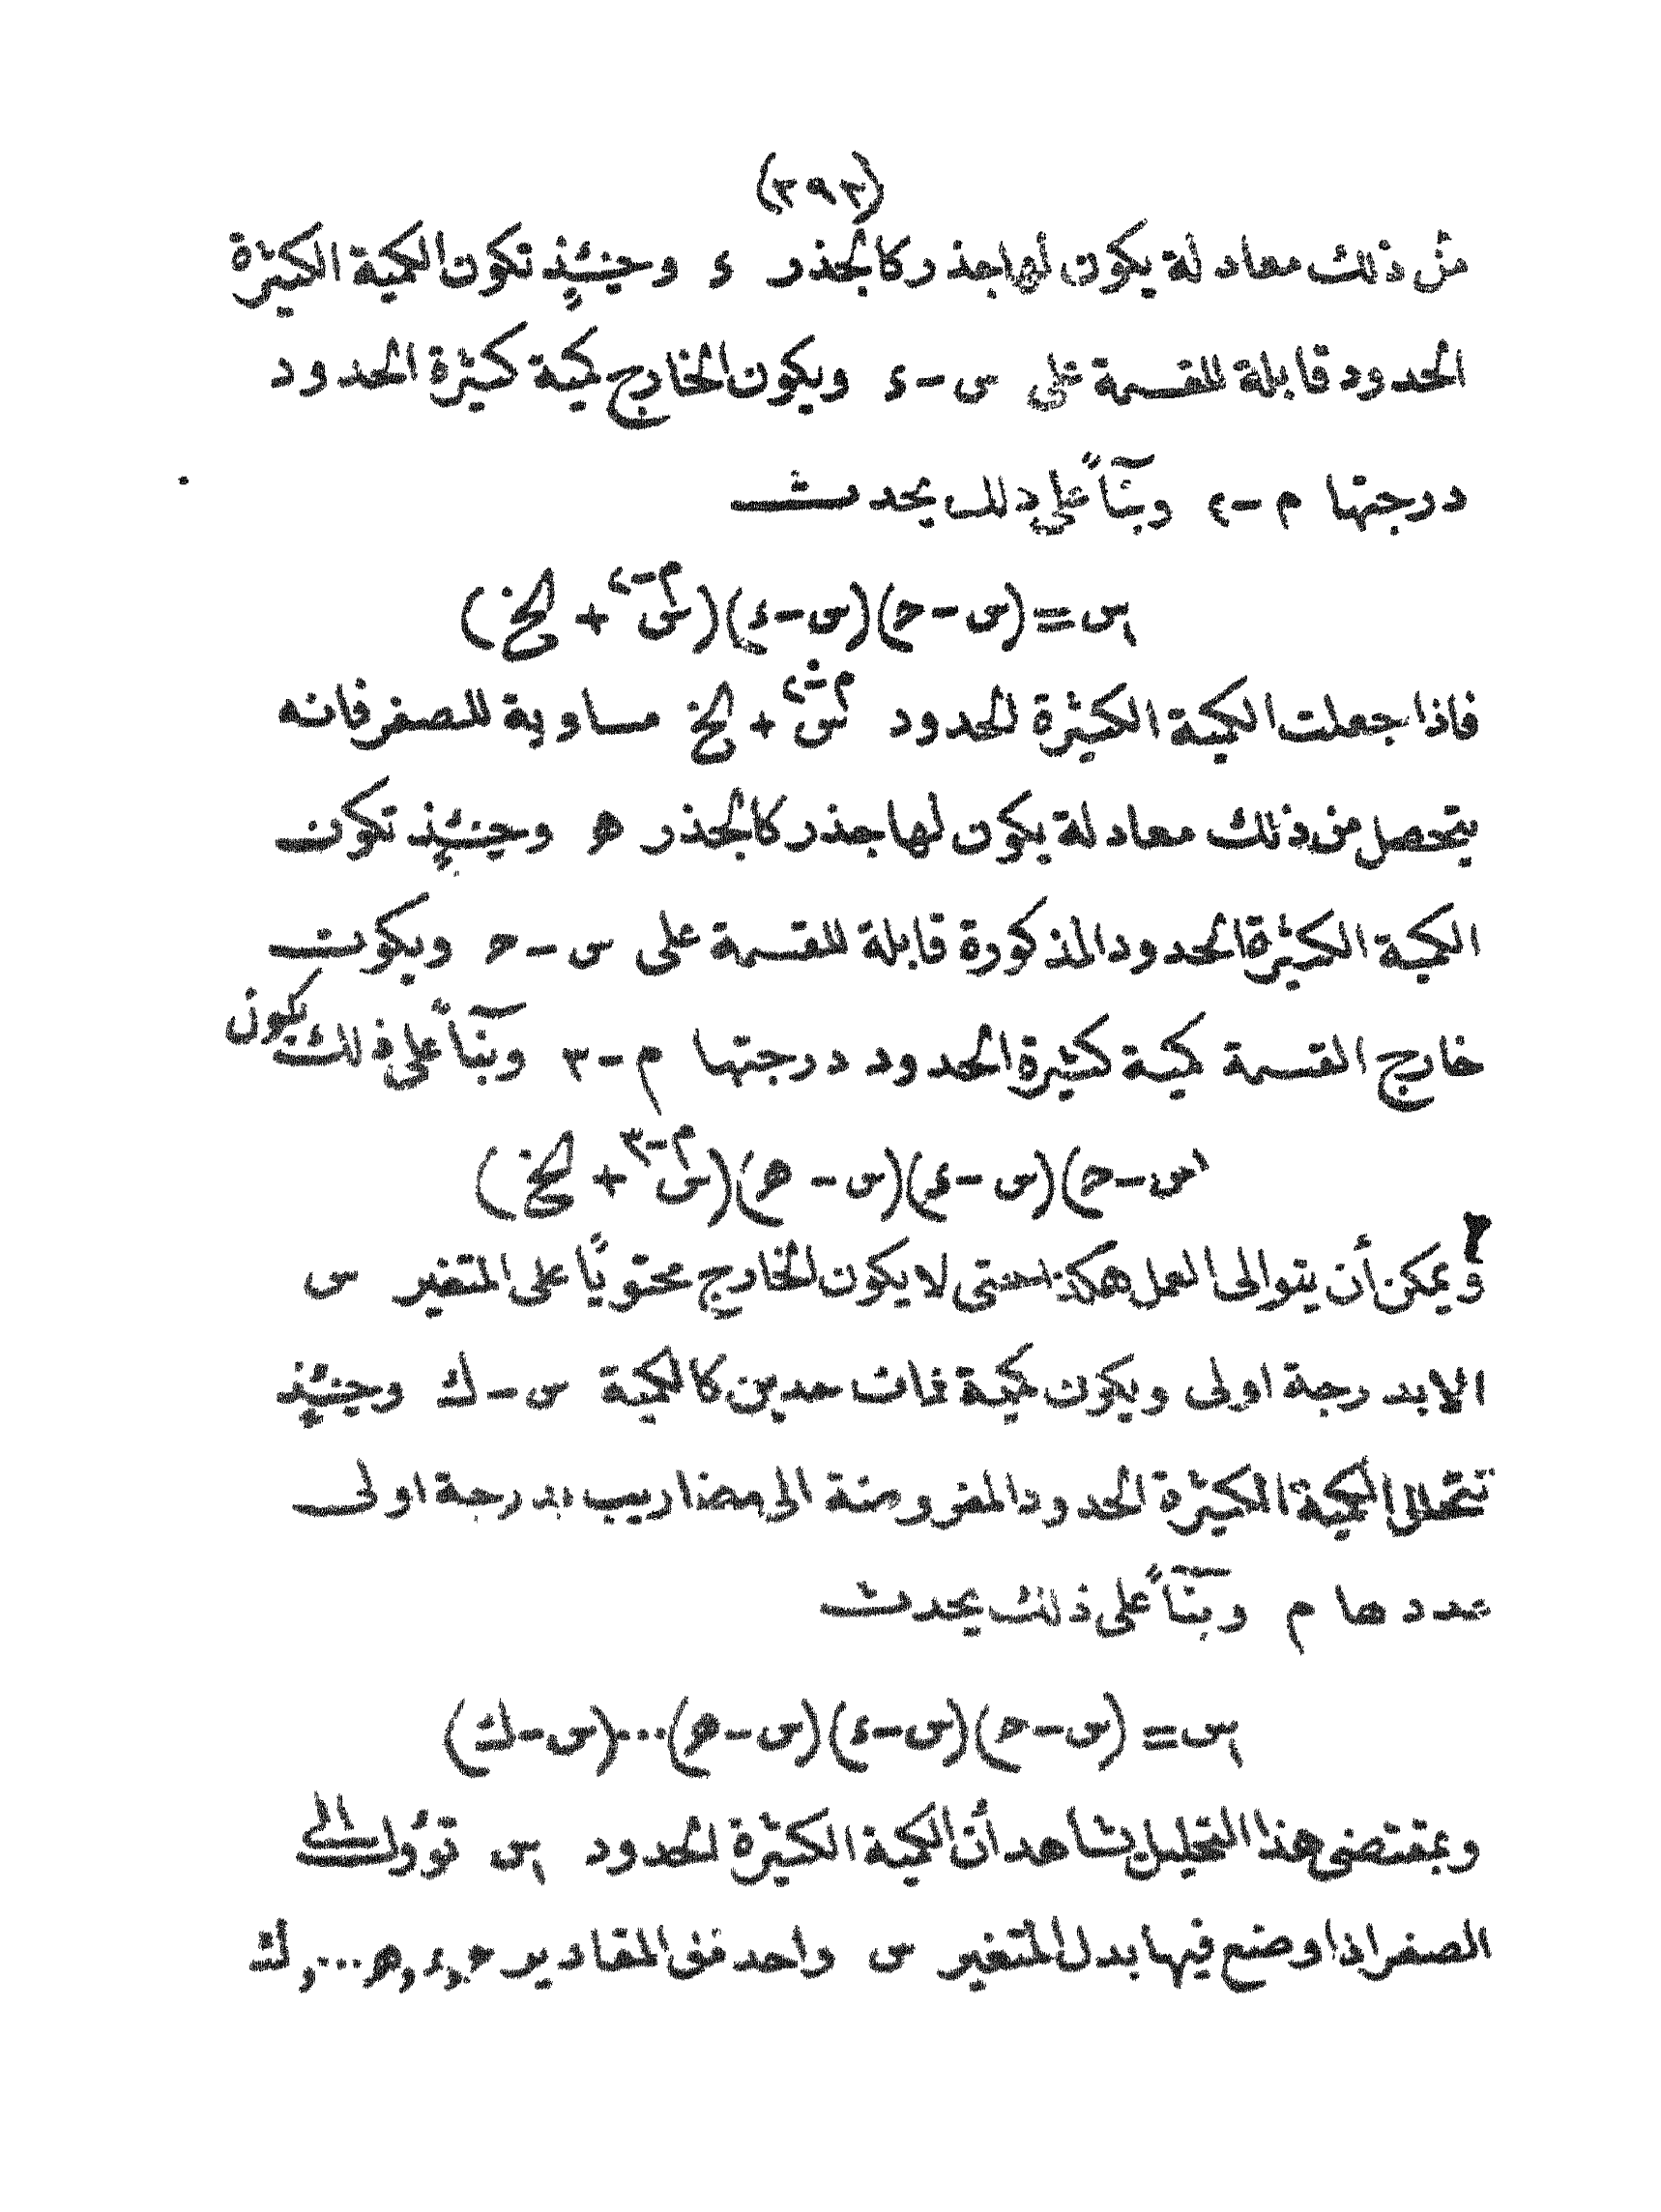 (٢٩٢)
من ذلك معادلة يكون لها جذر كالجذر ء وحينئذٍ تكون الكمية الكثيرة
الحدود قابلة للقسمة على س - ء ويكون الخارج كمية كثيرة الحدود
درجتها م - ٢ وبنآءً على ذلك يحدث
س١ = (س - ح)(س - ء)(س^(م-٢) + الخ)
فاذا جعلت الكمية الكثيرة الحدود س^(م-٢) + الخ مساوية للصفر فانه
يتحصل من ذلك معادلة يكون لها جذر كالجذر ه وحينئذٍ تكون
الكمية الكثيرة الحدود المذكورة قابلة للقسمة على س - ح ويكون
خارج القسمة كمية كثيرة الحدود درجتها م - ٣ وبنآءً على ذلك يكون
(س - ح)(س - ء)(س - ه)(س^(م-٣) + الخ)
ويمكن أن يتوالى العمل هكذا حتى لا يكون الخارج محتويًا على المتغير س
الا بدرجة اولى ويكون كمية ذات حدين كالكمية س - ك وحينئذٍ
تتحلل الكمية الكثيرة الحدود المفروضة الى مضاريب بدرجة اولى
عددها م وبنآءً على ذلك يحدث
س١ = (س - ح)(س - ء)(س - ه)...(س - ك)
وبمقتضى هذا التحليل تشاهد أن الكمية الكثيرة الحدود س١ تؤول الى
الصفر اذا وضع فيها بدل المتغير س واحد من المقادير ح , ء , ه , ... , ك